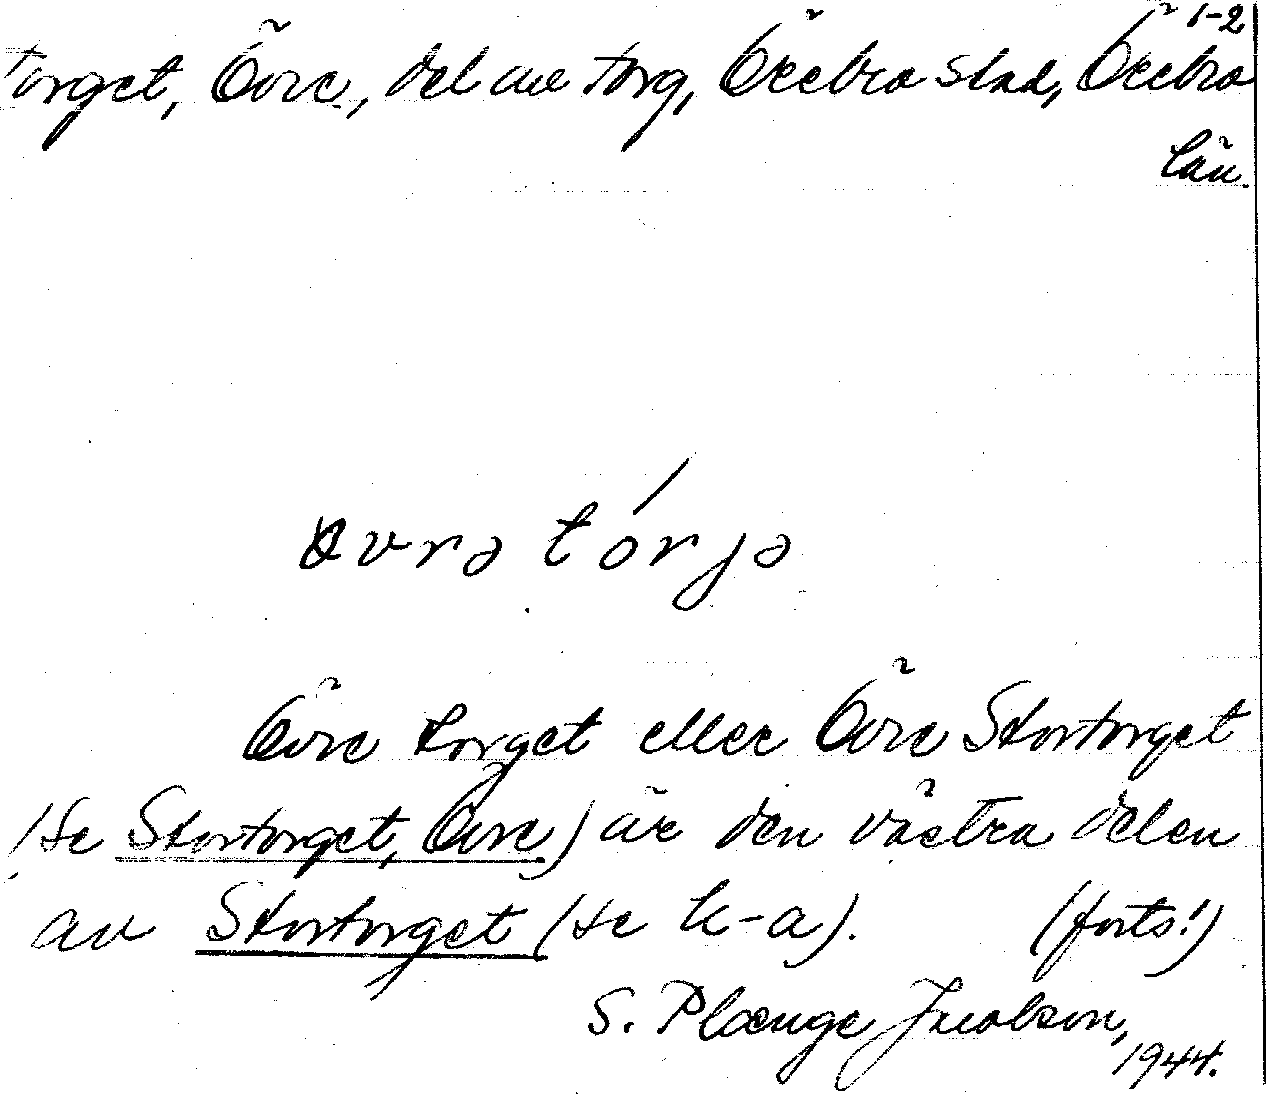 1-2
Torget, Övre, del av torg, Örebro stad, Örebro
län.
øvrə tórjə
Övre torget eller Övre Stortorget
(se Stortorget, Övre) är den västra delen
av Stortorget (se h-a). (forts!)
S. Plænge Jacobson,
1944.